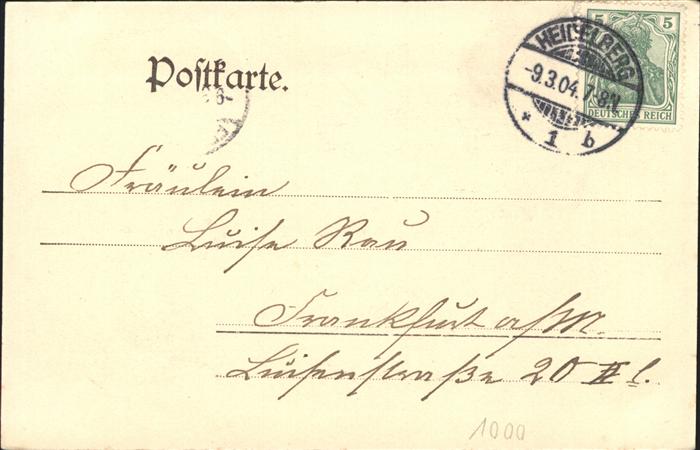 5 5
DEUTSCHES REICH
HEIDELBERG
-9.3.04.7-8V.
* 1 b
Postkarte.
Fräulein
Luise Rau
Frankfurt a/M.
Luisenstraße 20 II l.
1000